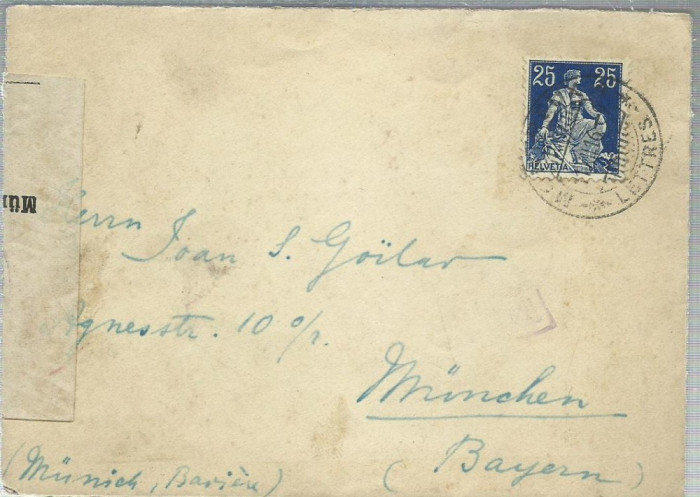 25 25
HELVETIA
LETTRES
Mün
Herrn Joan S. Goilav
Agnesstr. 10 o/r.
München
(Bayern)
(Münich, Bavière)